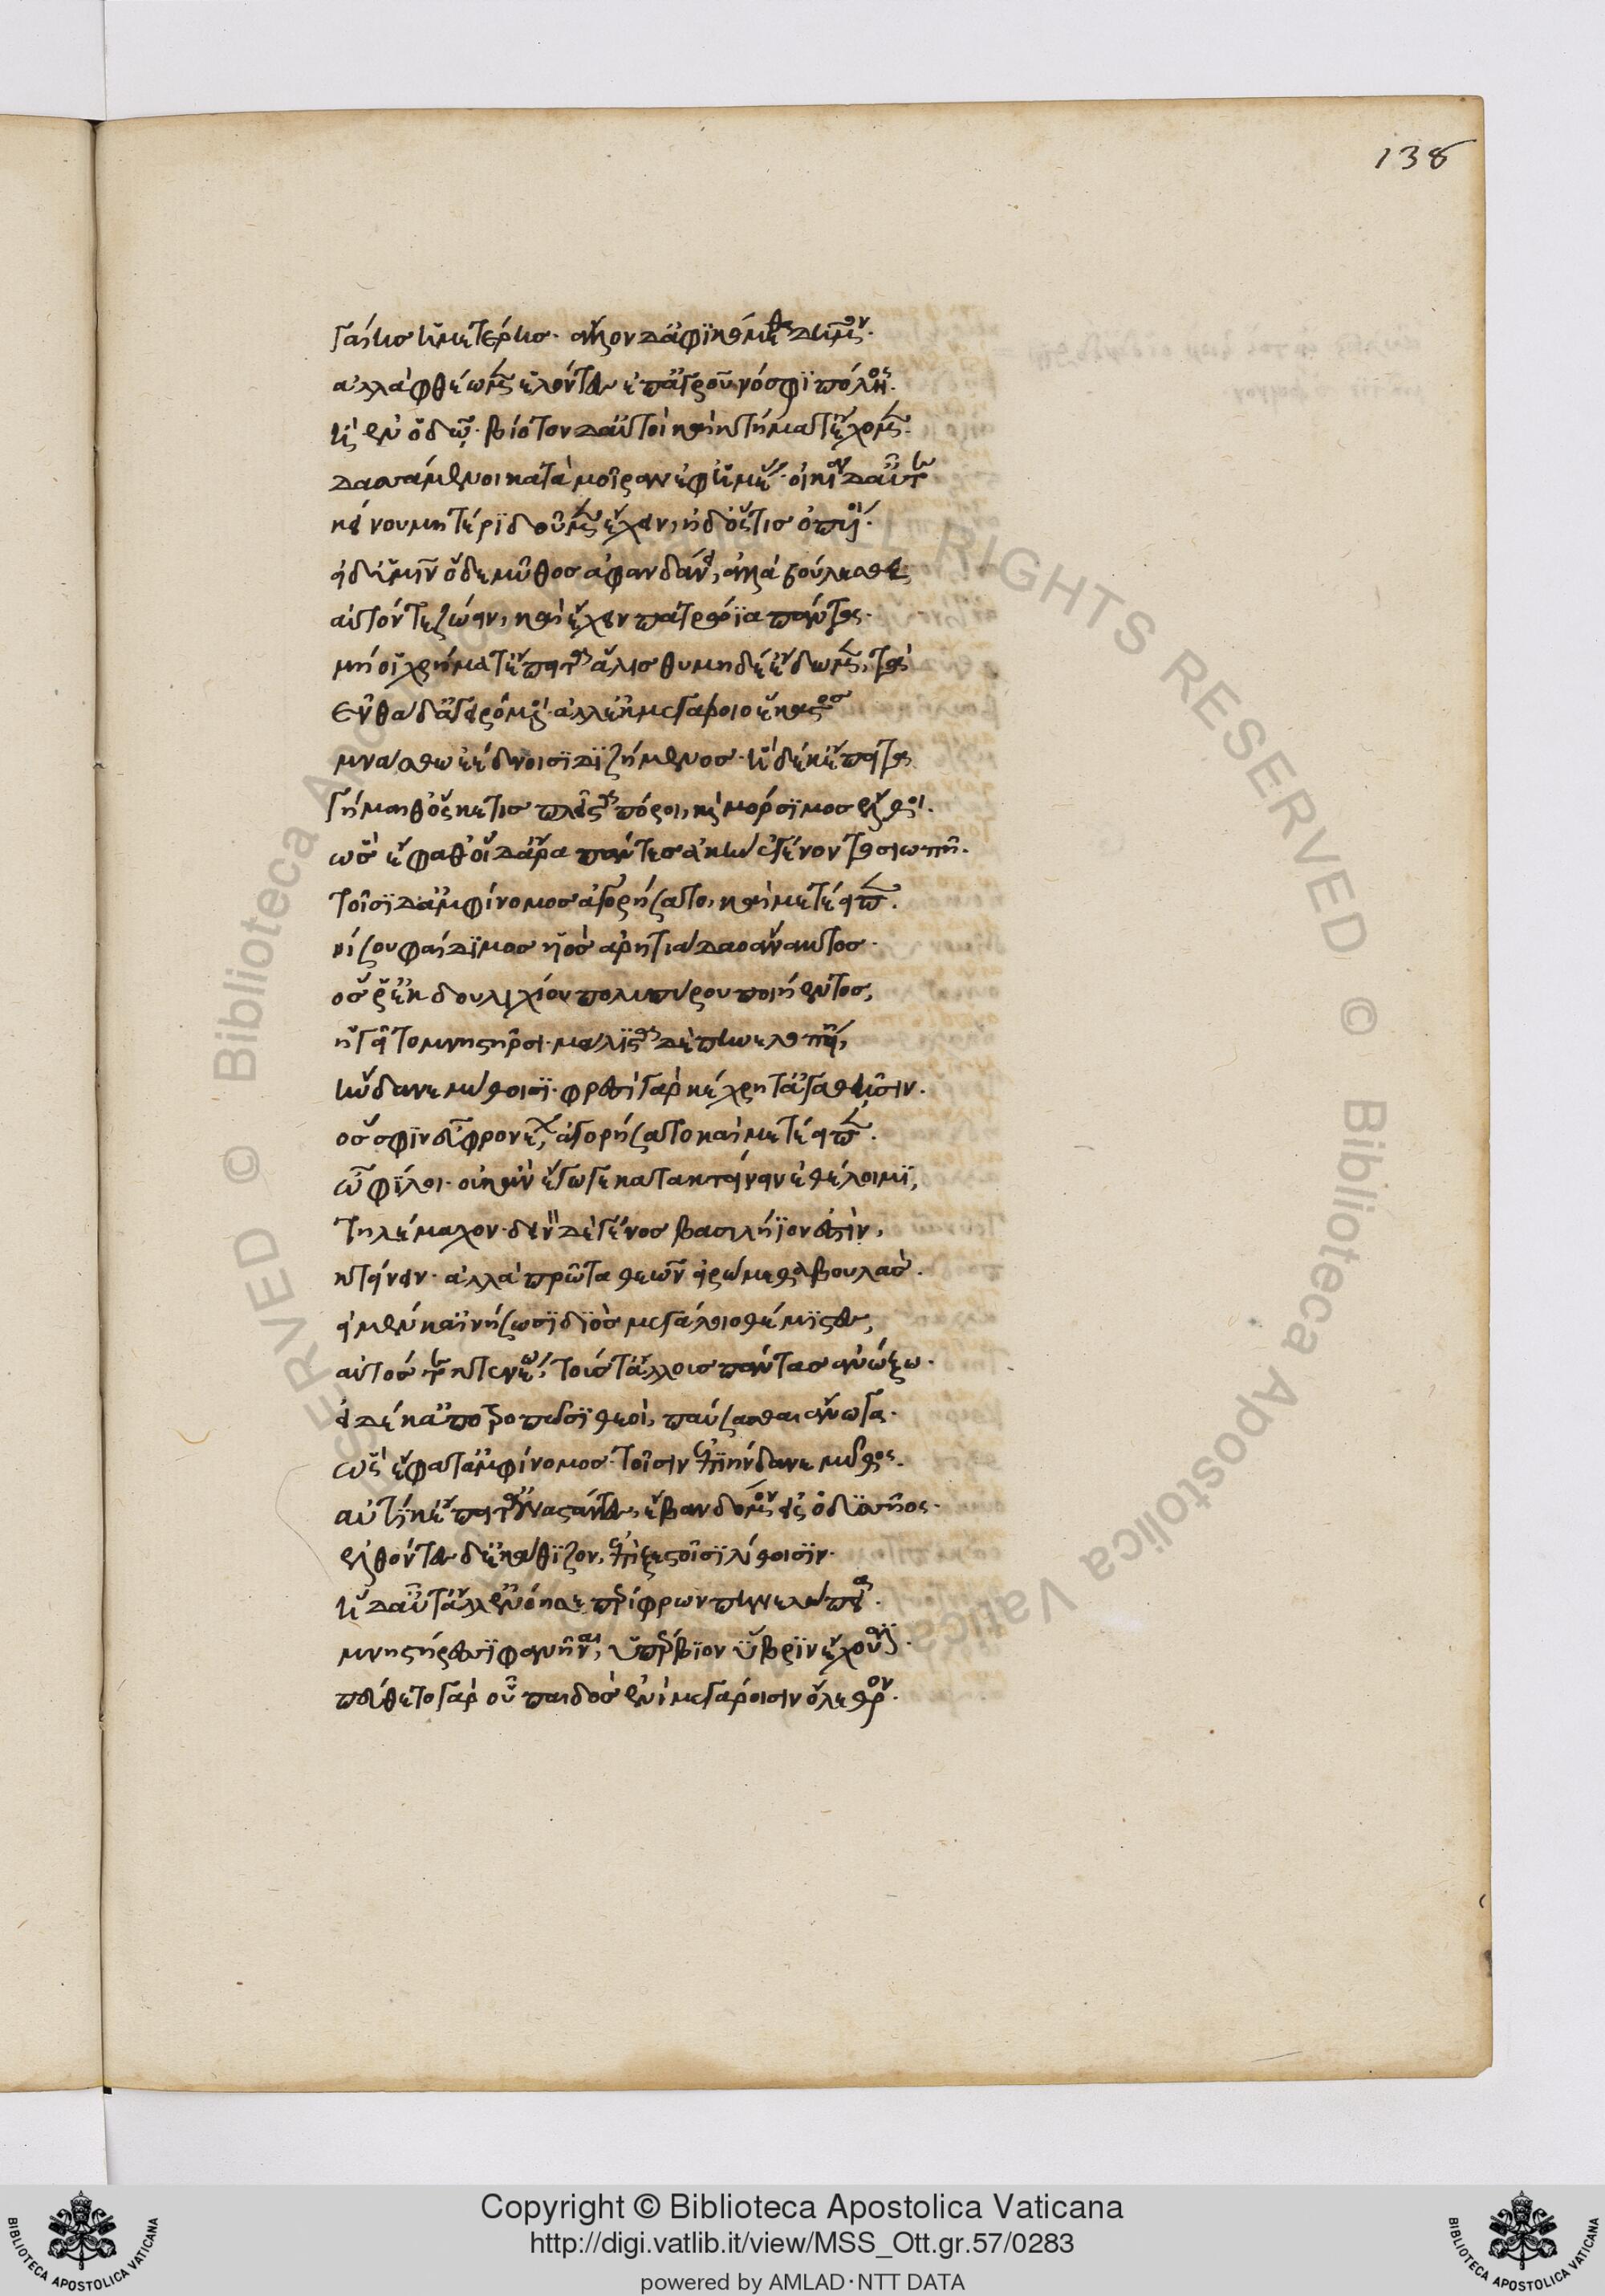 γαίης ἡμετέρης· ἄλλον δ' ἀφϊκώμεθα δῆμον·
ἀλλὰ φθέωμεν ἑλόντες ἐπ' ἀγροῦ νόσφϊ πόληος·
ἢ ἐν ὁδῷ· βίοτον δ' αὐτοὶ καὶ κτήματ' ἔχομεν·
δασσάμενοι κατὰ μοῖραν ἐφ' ἡμέας· οἰκία δ' αὖτε
κείνου μητέρϊ δοῦμεν ἔχειν, ἠδ' ὅς τις ὀπυίοι·
εἰ δ' ὑμῖν ὅδε μῦθος ἀφανδάνει, ἀλλὰ βούλεσθε,
αὐτόν τε ζώειν, καὶ ἔχειν πατρώϊα πάντα·
μή οἱ χρήματ' ἔπειτα ἅλις θυμηδέ' ἔδωμεν,
ἔνθαδ' ἀγειρόμενοι· ἀλλ' ἐκ μεγάροιο ἕκαστος
μνάσθω ἐέδνοισϊ δϊζήμενος· ἡ δέ κ' ἔπειτα
γήμαιθ' ὅς κέ τις πλεῖστα πόροι, καὶ μόρσϊμος ἔλθοι.
ὣς ἔφαθ' οἱ δ' ἄρα πάντες ἀκὴν ἐγένοντο σιωπῇ.
τοῖσϊ δ' ἀμφίνομος ἀγορήσατο, καὶ μετέειπεν.
νίσου φαίδϊμος υἱὸς ἀρητιάδαο ἄνακτος·
ὅς ῥ' ἐκ δουλιχίου πολυπύρου ποιήεντος,
ἡγεῖτο μνηστῆρσι· μάλϊστα δὲ πηνελοπείῃ,
ἥνδανε μύθοισϊ· φρεσὶ γὰρ κέχρητ' ἀγαθῇσιν.
ὅς σφϊν ἐϋφρονέων, ἀγορήσατο καὶ μετέειπεν.
ὦ φίλοι· οὐκ ἂν ἔγωγε κατακτείνειν ἐθέλοιμϊ,
τηλέμαχον· δεινὸν δὲ γένος βασιλήϊον ἐστὶν,
κτείνειν· ἀλλὰ πρῶτα θεῶν εἰρώμεθα βουλάς.
εἰ μέν κ' αἰνήσωσϊ διὸς μεγάλοιο θέμϊστες,
αὐτός τε κτενέω, τούς τ' ἄλλους πάντας ἀνώξω.
εἰ δέ κ' ἀποτροπέωσϊ θεοὶ, παύσασθαι ἄνωγα.
ὣς ἔφατ' ἀμφίνομος· τοῖσιν δ' ἐπιήνδανε μῦθος.
αὐτίκ' ἔπειτ' ἀνστάντες, ἔβαν δόμον εἰς ὀδυσῆος·
ἐλθόντες δὲ κάθϊζον, ἐπὶ ξεστοῖσϊ λίθοισϊν.
ἡ δ' αὖτ' ἄλλ' ἐνόησε περίφρων πηνελόπεια.
μνηστήρεσσϊ φανῆναι, ὑπέρβϊον ὕβρϊν ἔχουσϊ.
πεύθετο γὰρ οὗ παιδὸς ἐνὶ μεγάροισιν ὄλεθρον.
138
Copyright © Biblioteca Apostolica Vaticana
http://digi.vatlib.it/view/MSS_Ott.gr.57/0283
powered by AMLAD·NTT DATA